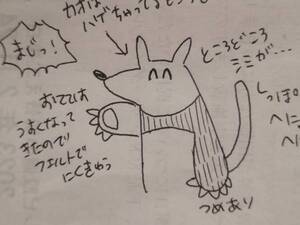 カオは
ハゲちゃってる
まじっ!
ところどころ
シミが…
おててはあ
うすくなって
きたので
フェルトで
にくきゅう
しっぽ
へに
へに
つめあり